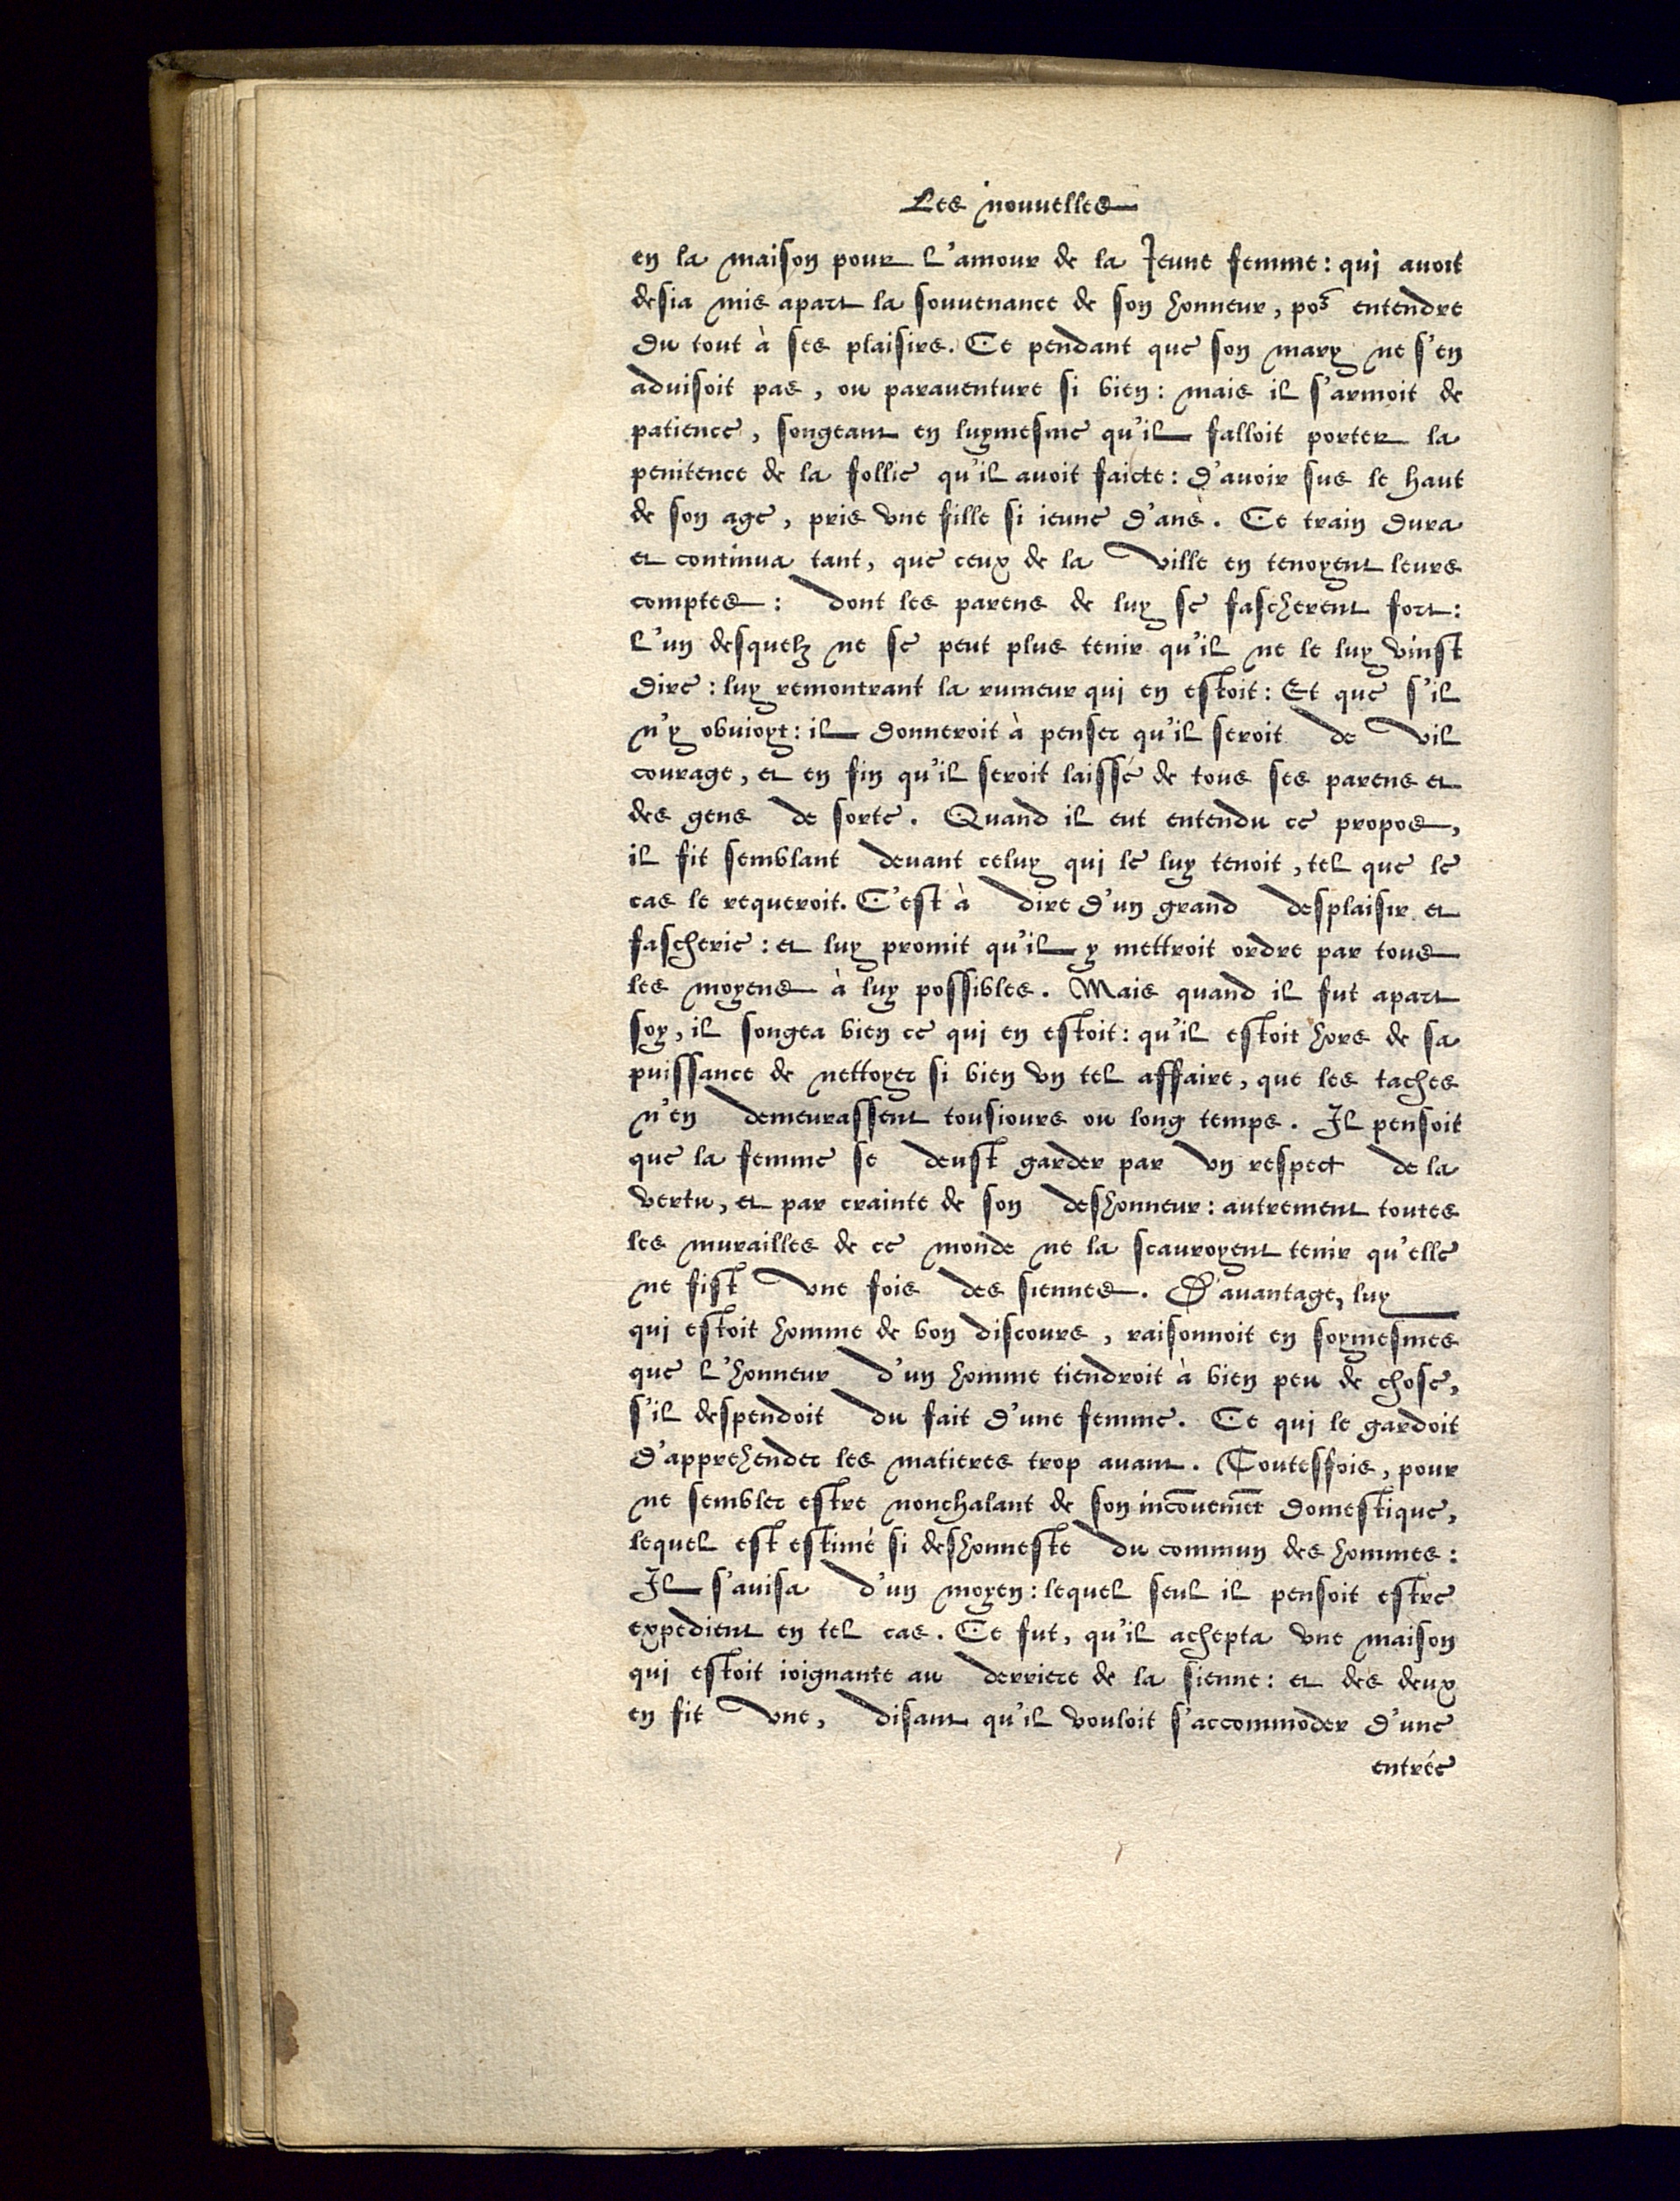 Les nouuelles
en la maison pour l'amour de la Jeune femme: qui auoit
desia mis apart la souuenance de son honneur, po⁹ entendre
du tout à ses plaisirs. Ce pendant que son mary ne s'en
aduisoit pas, ou parauenture si bien: mais il s'armoit de
patience, songeant en luymesme qu'il falloit porter la
penitence de la follie qu'il auoit faicte: d'auoir sus le haut
de son age, pris vne fille si ieune d'ans. Ce train dura
et continua tant, que ceux de la ville en tenoyent leurs
comptes: dont les parens de luy se fascherent fort:
l'un desquelz ne se peut plus tenir qu'il ne le luy vinst
dire: luy remontrant la rumeur qui en estoit: Et que s'il
n'y obuioyt: il donneroit à penser qu'il seroit de vil
courage, et en fin qu'il seroit laissé de tous ses parens et
des gens de sorte. Quand il eut entendu ce propos,
il fit semblant deuant celuy qui le luy tenoit, tel que le
cas le requeroit. C'est à dire d'un grand desplaisir et
fascherie: et luy promit qu'il y mettroit ordre par tous
les moyens à luy possibles. Mais quand il fut apart
soy, il songea bien ce qui en estoit: qu'il estoit hors de sa
puissance de nettoyer si bien vn tel affaire, que les taches
n'en demeurassent tousiours ou long temps. Il pensoit
que la femme se deust garder par vn respect de la
vertu, et par crainte de son deshonneur: autrement toutes
les murailles de ce monde ne la scauroyent tenir qu'elle
ne fist vne fois des siennes. D'auantage, luy
qui estoit homme de bon discours, raisonnoit en soymesmes
que l'honneur d'un homme tiendroit à bien peu de chose,
s'il despendoit du fait d'une femme. Ce qui le gardoit
d'apprehender les matieres trop auant. Toutesfois, pour
ne sembler estre nonchalant de son incōueniēt domestique,
lequel est estimé si deshonneste du commun des hommes:
Il s'auisa d'un moyen: lequel seul il pensoit estre
expedient en tel cas. Ce fut, qu'il achepta vne maison
qui estoit ioignante au derriere de la sienne: et des deux
en fit vne, disant qu'il vouloit s'accommoder d'une
entrée